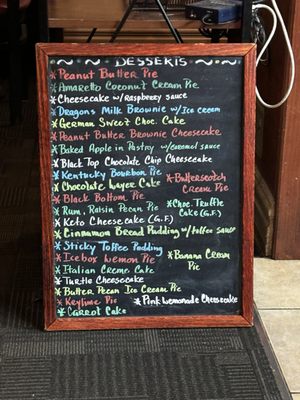 ~ ~ DESSERTS ~ ~
*Peanut Butter Pie
*Amaretto Coconut Creme Pie
*Cheesecake w/Raspberry Sauce
*Dragons Milk Brownie w/Ice cream
*German Sweet Choc. Cake
*Peanut Butter Brownie Cheesecake
*Baked Apple in Pastry w/caramel sauce
*Black Top Chocolate Chip Cheesecake
*Kentucky Bourbon Pie
*Chocolate Layer Cake
*Butterscotch Cream Pie
*Black Bottom Pie
*Rum, Raisin Pecan Pie
*Choc. Truffle Cake (G.F.)
*Keto Cheesecake (G.F.)
*Cinnamon Bread Pudding w/toffee sauce
*Sticky Toffee Pudding
*Icebox Lemon Pie
*Banana Cream Pie
*Italian Creme Cake
*Turtle Cheesecake
*Butter Pecan Ice Cream Pie
*Keylime Pie
*Pink Lemonade Cheesecake
*Carrot Cake